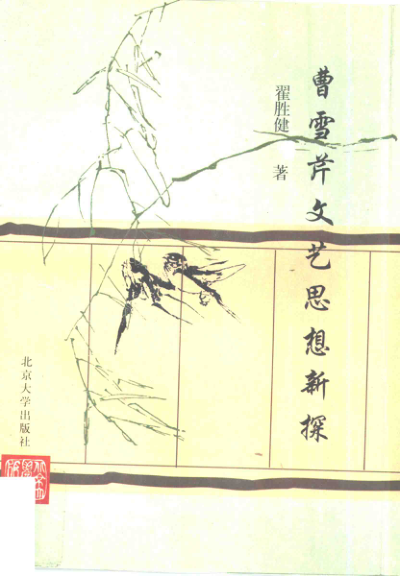 曹雪芹文艺思想新探
翟胜健 著
北京大学出版社